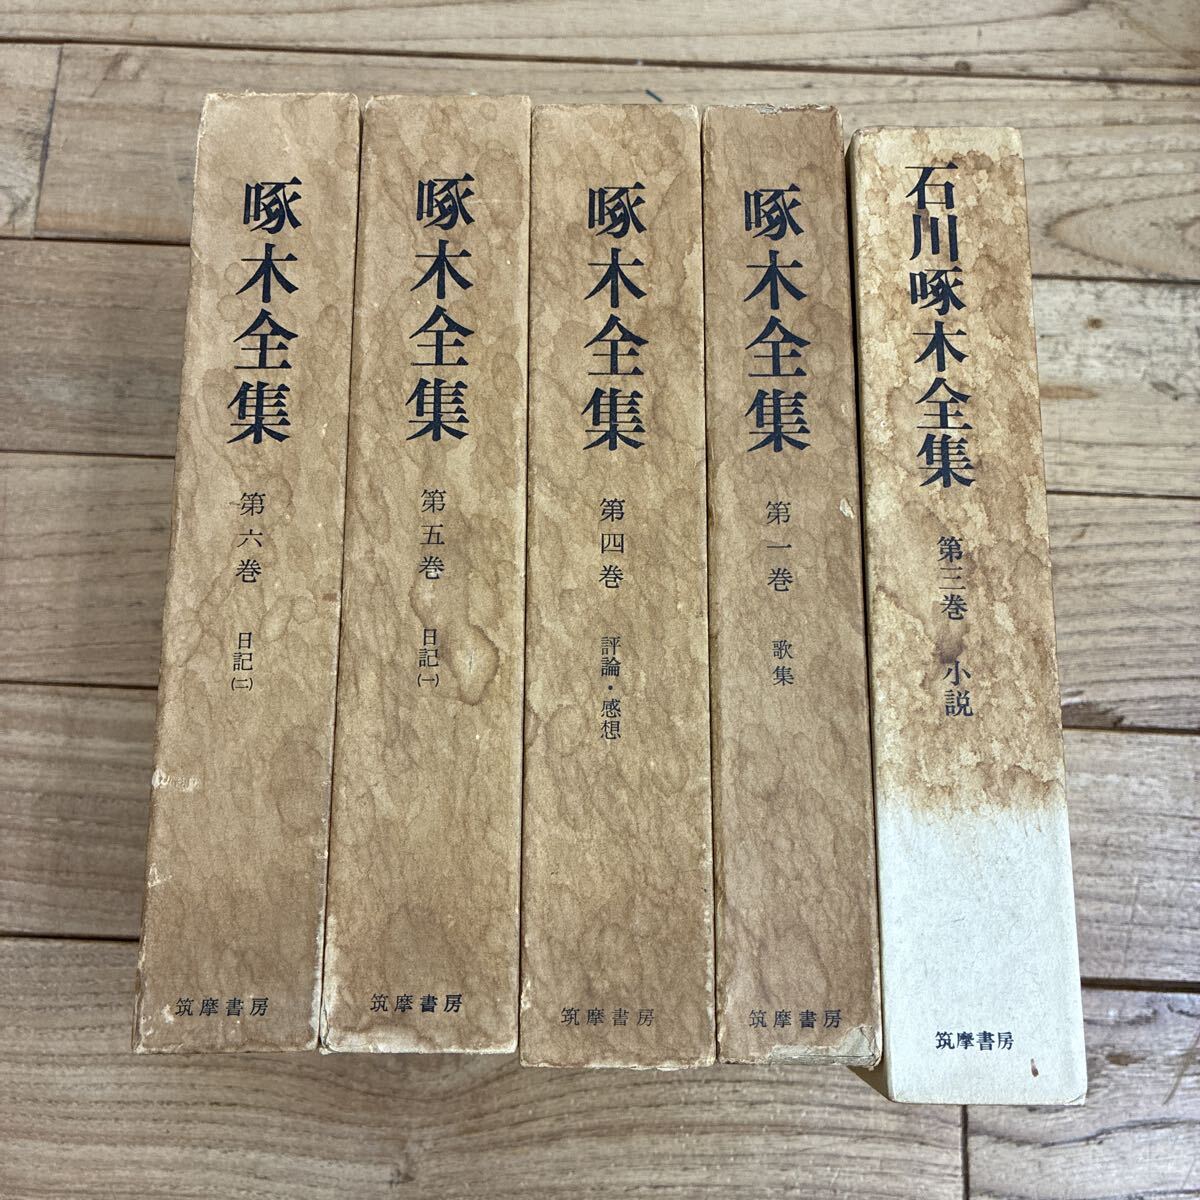 啄木全集
第六巻
日記(二)
筑摩書房
啄木全集
第五巻
日記(一)
筑摩書房
啄木全集
第四巻
評論・感想
筑摩書房
啄木全集
第一巻
歌集
筑摩書房
石川啄木全集
第三巻
小説
筑摩書房